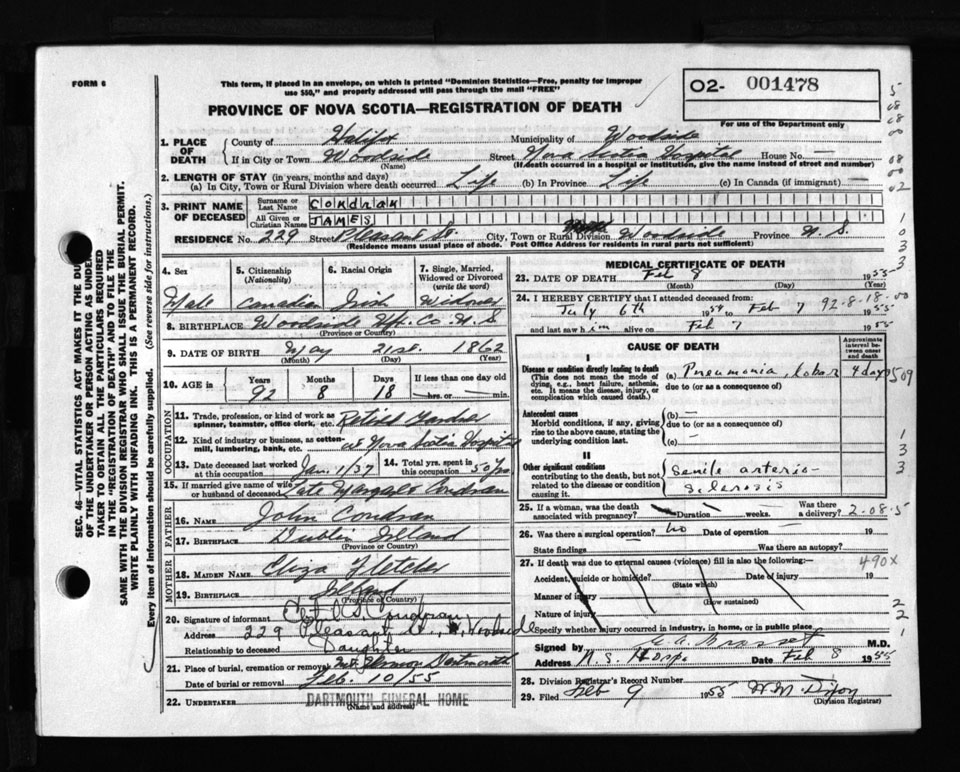 FORM 6
This form, if placed in an envelope, on which is printed "Dominion Statistics—Free, penalty for improper
use $50," and property addressed will pass through the mail "FREE"
O2- 001478
For use of the Department only
PROVINCE OF NOVA SCOTIA—REGISTRATION OF DEATH
1. PLACE OF DEATH
County of Halifax Municipality of Woodside
If in City or Town Woodside Street Nova Scotia Hospital House No. —
(Name) (If death occurred in a hospital or institution, give the name instead of street and number)
2. LENGTH OF STAY (in years, months and days)
(a) In City, Town or Rural Division where death occurred Life (b) In Province Life (c) In Canada (if immigrant) —
3. PRINT NAME OF DECEASED
Surname or Last Name CONDRAN
All Given or Christian Names JAMES
RESIDENCE No. 229 Street Pleasant St. City, Town or Rural Division Woodside Province N.S.
(Residence means usual place of abode. Post Office Address for residents in rural parts not sufficient)
4. Sex Male
5. Citizenship (Nationality) Canadian
6. Racial Origin Irish
7. Single, Married, Widowed or Divorced (write the word) Widower
8. BIRTHPLACE Woodside Hfx. Co. N.S.
(Province or Country)
9. DATE OF BIRTH May 21st. 1862
(Month) (Day) (Year)
10. AGE in Years 92 Months 8 Days 18 If less than one day old hrs. or min.
OCCUPATION
11. Trade, profession, or kind of work as spinner, teamster, office clerk, etc. Retired
12. Kind of industry or business, as cotton-mill, lumbering, bank, etc. at Nova Scotia Hospital
13. Date deceased last worked at this occupation Jan. 1/37 14. Total yrs. spent in this occupation 50 yrs
15. If married give name of wife or husband of deceased Late Margaret Condran
FATHER
16. NAME John Condran
17. BIRTHPLACE Dublin Ireland
(Province or Country)
MOTHER
18. MAIDEN NAME Eliza Fletcher
19. BIRTHPLACE Ireland
(Province or Country)
20. Signature of informant Condran
Address 229 Pleasant St., Woodside
Relationship to deceased Daughter
21. Place of burial, cremation or removal Mt. Hermon Dartmouth
Date of burial or removal Feb. 10/55
22. UNDERTAKER DARTMOUTH FUNERAL HOME
(Name and address)
MEDICAL CERTIFICATE OF DEATH
23. DATE OF DEATH Feb 8 1955
(Month) (Day)
24. I HEREBY CERTIFY that I attended deceased from
July 6th 1954 to Feb 7 1955
92-8-18
and last saw him alive on Feb 7 1955
CAUSE OF DEATH
Approximate interval between onset and death
I
Disease or condition directly leading to death
(This does not mean the mode of dying, e.g., heart failure, asthenia, etc. It means the disease, injury, or complication which caused death.)
(a) Pneumonia, lobar 4 days
due to (or as a consequence of)
Antecedent causes
Morbid conditions, if any, giving rise to the above cause, stating the underlying condition last.
(b) —
due to (or as a consequence of)
(c) —
II
Other significant conditions
contributing to the death, but not related to the disease or condition causing it.
Senile arterio-
sclerosis
25. If a woman, was the death associated with pregnancy? Duration weeks. Was there a delivery?
2-08-5
26. Was there a surgical operation? no Date of operation — 19
State findings Was there an autopsy?
27. If death was due to external causes (violence) fill in also the following:
490X
Accident, suicide or homicide? Date of injury 19
(State which)
Manner of injury
(How sustained)
Nature of injury
Specify whether injury occurred in industry, in home, or in public place
Signed by M.D.
Address N.S. Hosp. Date Feb 8 1955
28. Division Registrar's Record Number
29. Filed Feb 9 1955 W. M. Dixon
(Division Registrar)
SEC. 46—VITAL STATISTICS ACT MAKES IT THE DUTY
OF THE UNDERTAKER OR PERSON ACTING AS UNDER-
TAKER TO OBTAIN ALL THE PARTICULARS REQUIRED
IN THE "REGISTRATION OF DEATH" AND TO FILE THE
SAME WITH THE DIVISION REGISTRAR WHO SHALL ISSUE THE BURIAL PERMIT.
WRITE PLAINLY WITH UNFADING INK. THIS IS A PERMANENT RECORD.
Every item of information should be carefully supplied. (See reverse side for instructions.)